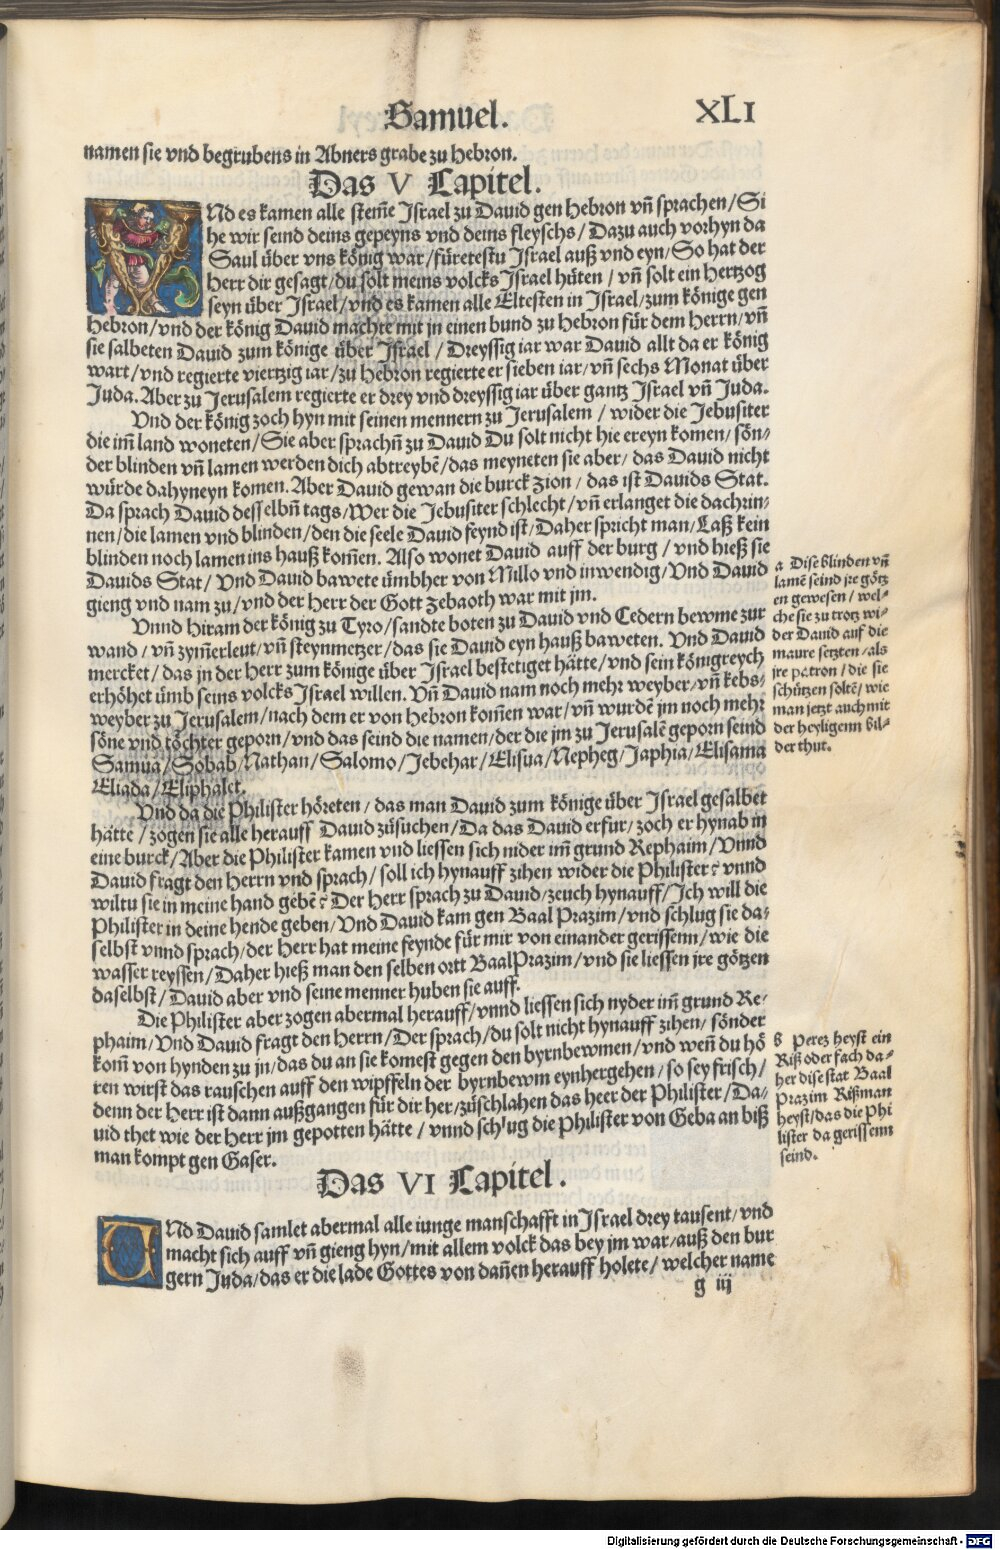 Samuel.
XLI
namen sie vnd begrubens in Abners grabe zu Hebron.
Das V Capitel.
VNd es kamen alle stem̃e Israel zu Dauid gen Hebron vñ sprachen/Si
he wir seind deins gepeyns vnd deins fleyschs/Dazu auch vorhyn da
Saul über vns könig war/füretestu Israel auß vnd eyn/So hat der
Herr dir gesagt/du solt meins volcks Israel hüten/vñ solt ein Hertzog
seyn über Israel/vnd es kamen alle Eltesten in Israel/zum könige gen
Hebron/vnd der könig Dauid machte mit jn einen bund zu Hebron für dem Herrn/vñ
sie salbeten Dauid zum könige über Israel/Dreyssig iar war Dauid allt da er könig
wart/vnd regierte viertzig iar/zu Hebron regierte er sieben iar/vñ sechs Monat über
Juda. Aber zu Jerusalem regierte er drey vnd dreyssig iar über gantz Israel vñ Juda.
Vnd der könig zoch hyn mit seinen mennern zu Jerusalem/wider die Jebusiter
die im̃ land woneten/Sie aber sprachñ zu Dauid Du solt nicht hie ereyn komen/sön-
der blinden vñ lamen werden dich abtreybẽ/das meyneten sie aber/das Dauid nicht
würde dahyneyn komen. Aber Dauid gewan die burck Zion/das ist Dauids Stat.
Da sprach Dauid desselbñ tags/Wer die Jebusiter schlecht/vñ erlanget die dachrin-
nen/die lamen vnd blinden/den die seele Dauid feynd ist/Daher spricht man/Laß kein
blinden noch lamen ins hauß kom̃en. Also wonet Dauid auff der burg/vnd hieß sie
Dauids Stat/Vnd Dauid bawete ümbher von Millo vnd inwendig/Vnd Dauid
gieng vnd nam zu/vnd der Herr der Gott Zebaoth war mit jm.
a Dise blinden vñ
lamẽ seind jre götz
en gewesen/wel-
che sie zu trotz wi-
der Dauid auf die
maure setzten/als
jre patron/die sie
schützen soltẽ/wie
man jetzt auch mit
der heyligenn bil-
der thut.
Vnnd Hiram der könig zu Tyro/sandte boten zu Dauid vnd Cedern bewme zur
wand/vñ zym̃erleut/vñ steynmetzer/das sie Dauid eyn hauß baweten. Vnd Dauid
mercket/das jn der Herr zum könige über Israel bestetiget hätte/vnd sein königreych
erhöhet ümb seins volcks Israel willen. Vñ Dauid nam noch mehr weyber/vñ kebs-
weyber zu Jerusalem/nach dem er von Hebron kom̃en war/vñ wurdẽ jm noch mehr
söne vnd töchter geporn/vnd das seind die namen/der die jm zu Jerusalẽ geporn seind
Samua/Sobab/Nathan/Salomo/Jebehar/Elisua/Nepheg/Japhia/Elisama
Eliada/Eliphalet.
Vnd da die Philister höreten/das man Dauid zum könige über Israel gesalbet
hätte/zogen sie alle herauff Dauid züsuchen/Da das Dauid erfur/zoch er hynab in
eine burck/Aber die Philister kamen vnd liessen sich nider im̃ grund Rephaim/Vnnd
Dauid fragt den Herrn vnd sprach/soll ich hynauff zihen wider die Philister? vnnd
wiltu sie in meine hand gebẽ? Der Herr sprach zu Dauid/zeuch hynauff/Ich will die
Philister in deine hende geben/Vnd Dauid kam gen Baal Prazim/vnd schlug sie da-
selbst vnnd sprach/der Herr hat meine feynde für mir von einander gerissenn/wie die
wasser reyssen/Daher hieß man den selben ortt Baal Prazim/vnd sie liessen jre götzen
daselbst/Dauid aber vnd seine menner huben sie auff.
Die Philister aber zogen abermal herauff/vnnd liessen sich nyder im̃ grund Re-
phaim/Vnd Dauid fragt den Herrn/Der sprach/du solt nicht hynauff zihen/sönder
kom̃ von hynden zu jn/das du an sie komest gegen den byrnbewmen/vnd weñ du hö
ren wirst das rauschen auff den wipffeln der byrnbewm eynhergehen/so sey frisch/
denn der Herr ist dann außgangen für dir her/züschlahen das heer der Philister/Da-
uid thet wie der Herr jm gepotten hätte/vnnd schlug die Philister von Geba an biß
man kompt gen Gaser.
b Perez heyst ein
Riß oder fach da-
her dise stat Baal
Prazim Rißman
heyst/das die Phi
lister da gerissenn
seind.
Das VI Capitel.
VNd Dauid samlet abermal alle iunge manschafft in Israel drey tausent/vnd
macht sich auff vñ gieng hyn/mit allem volck das bey jm war/auß den bur
gern Juda/das er die lade Gottes von dañen herauff holete/welcher name
g iij
Digitalisierung gefördert durch die Deutsche Forschungsgemeinschaft - DFG